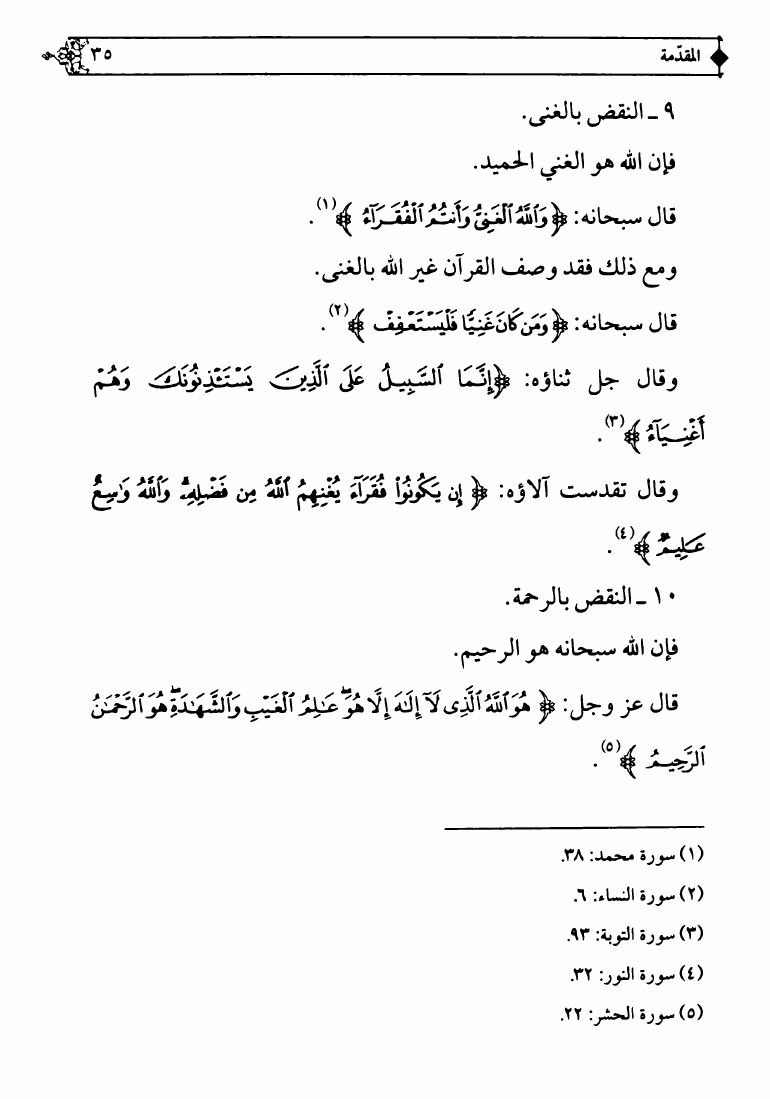 المقدّمة ٣٥
٩ ـ النقض بالغنى.
فإن الله هو الغني الحميد.
قال سبحانه: ﴿وَٱللَّهُ ٱلْغَنِىُّ وَأَنتُمُ ٱلْفُقَرَآءُ﴾(١).
ومع ذلك فقد وصف القرآن غير الله بالغنى.
قال سبحانه: ﴿وَمَن كَانَ غَنِيًّا فَلْيَسْتَعْفِفْ﴾(٢).
وقال جل ثناؤه: ﴿إِنَّمَا ٱلسَّبِيلُ عَلَى ٱلَّذِينَ يَسْتَـْٔذِنُونَكَ وَهُمْ
أَغْنِيَآءُ﴾(٣).
وقال تقدست آلاؤه: ﴿إِن يَكُونُوا۟ فُقَرَآءَ يُغْنِهِمُ ٱللَّهُ مِن فَضْلِهِۦ ۗ وَٱللَّهُ وَٰسِعٌ
عَلِيمٌ﴾(٤).
١٠ ـ النقض بالرحمة.
فإن الله سبحانه هو الرحيم.
قال عز وجل: ﴿هُوَ ٱللَّهُ ٱلَّذِى لَآ إِلَٰهَ إِلَّا هُوَ ۖ عَٰلِمُ ٱلْغَيْبِ وَٱلشَّهَٰدَةِ ۖ هُوَ ٱلرَّحْمَٰنُ
ٱلرَّحِيمُ﴾(٥).
(١) سورة محمد: ٣٨.
(٢) سورة النساء: ٦.
(٣) سورة التوبة: ٩٣.
(٤) سورة النور: ٣٢.
(٥) سورة الحشر: ٢٢.